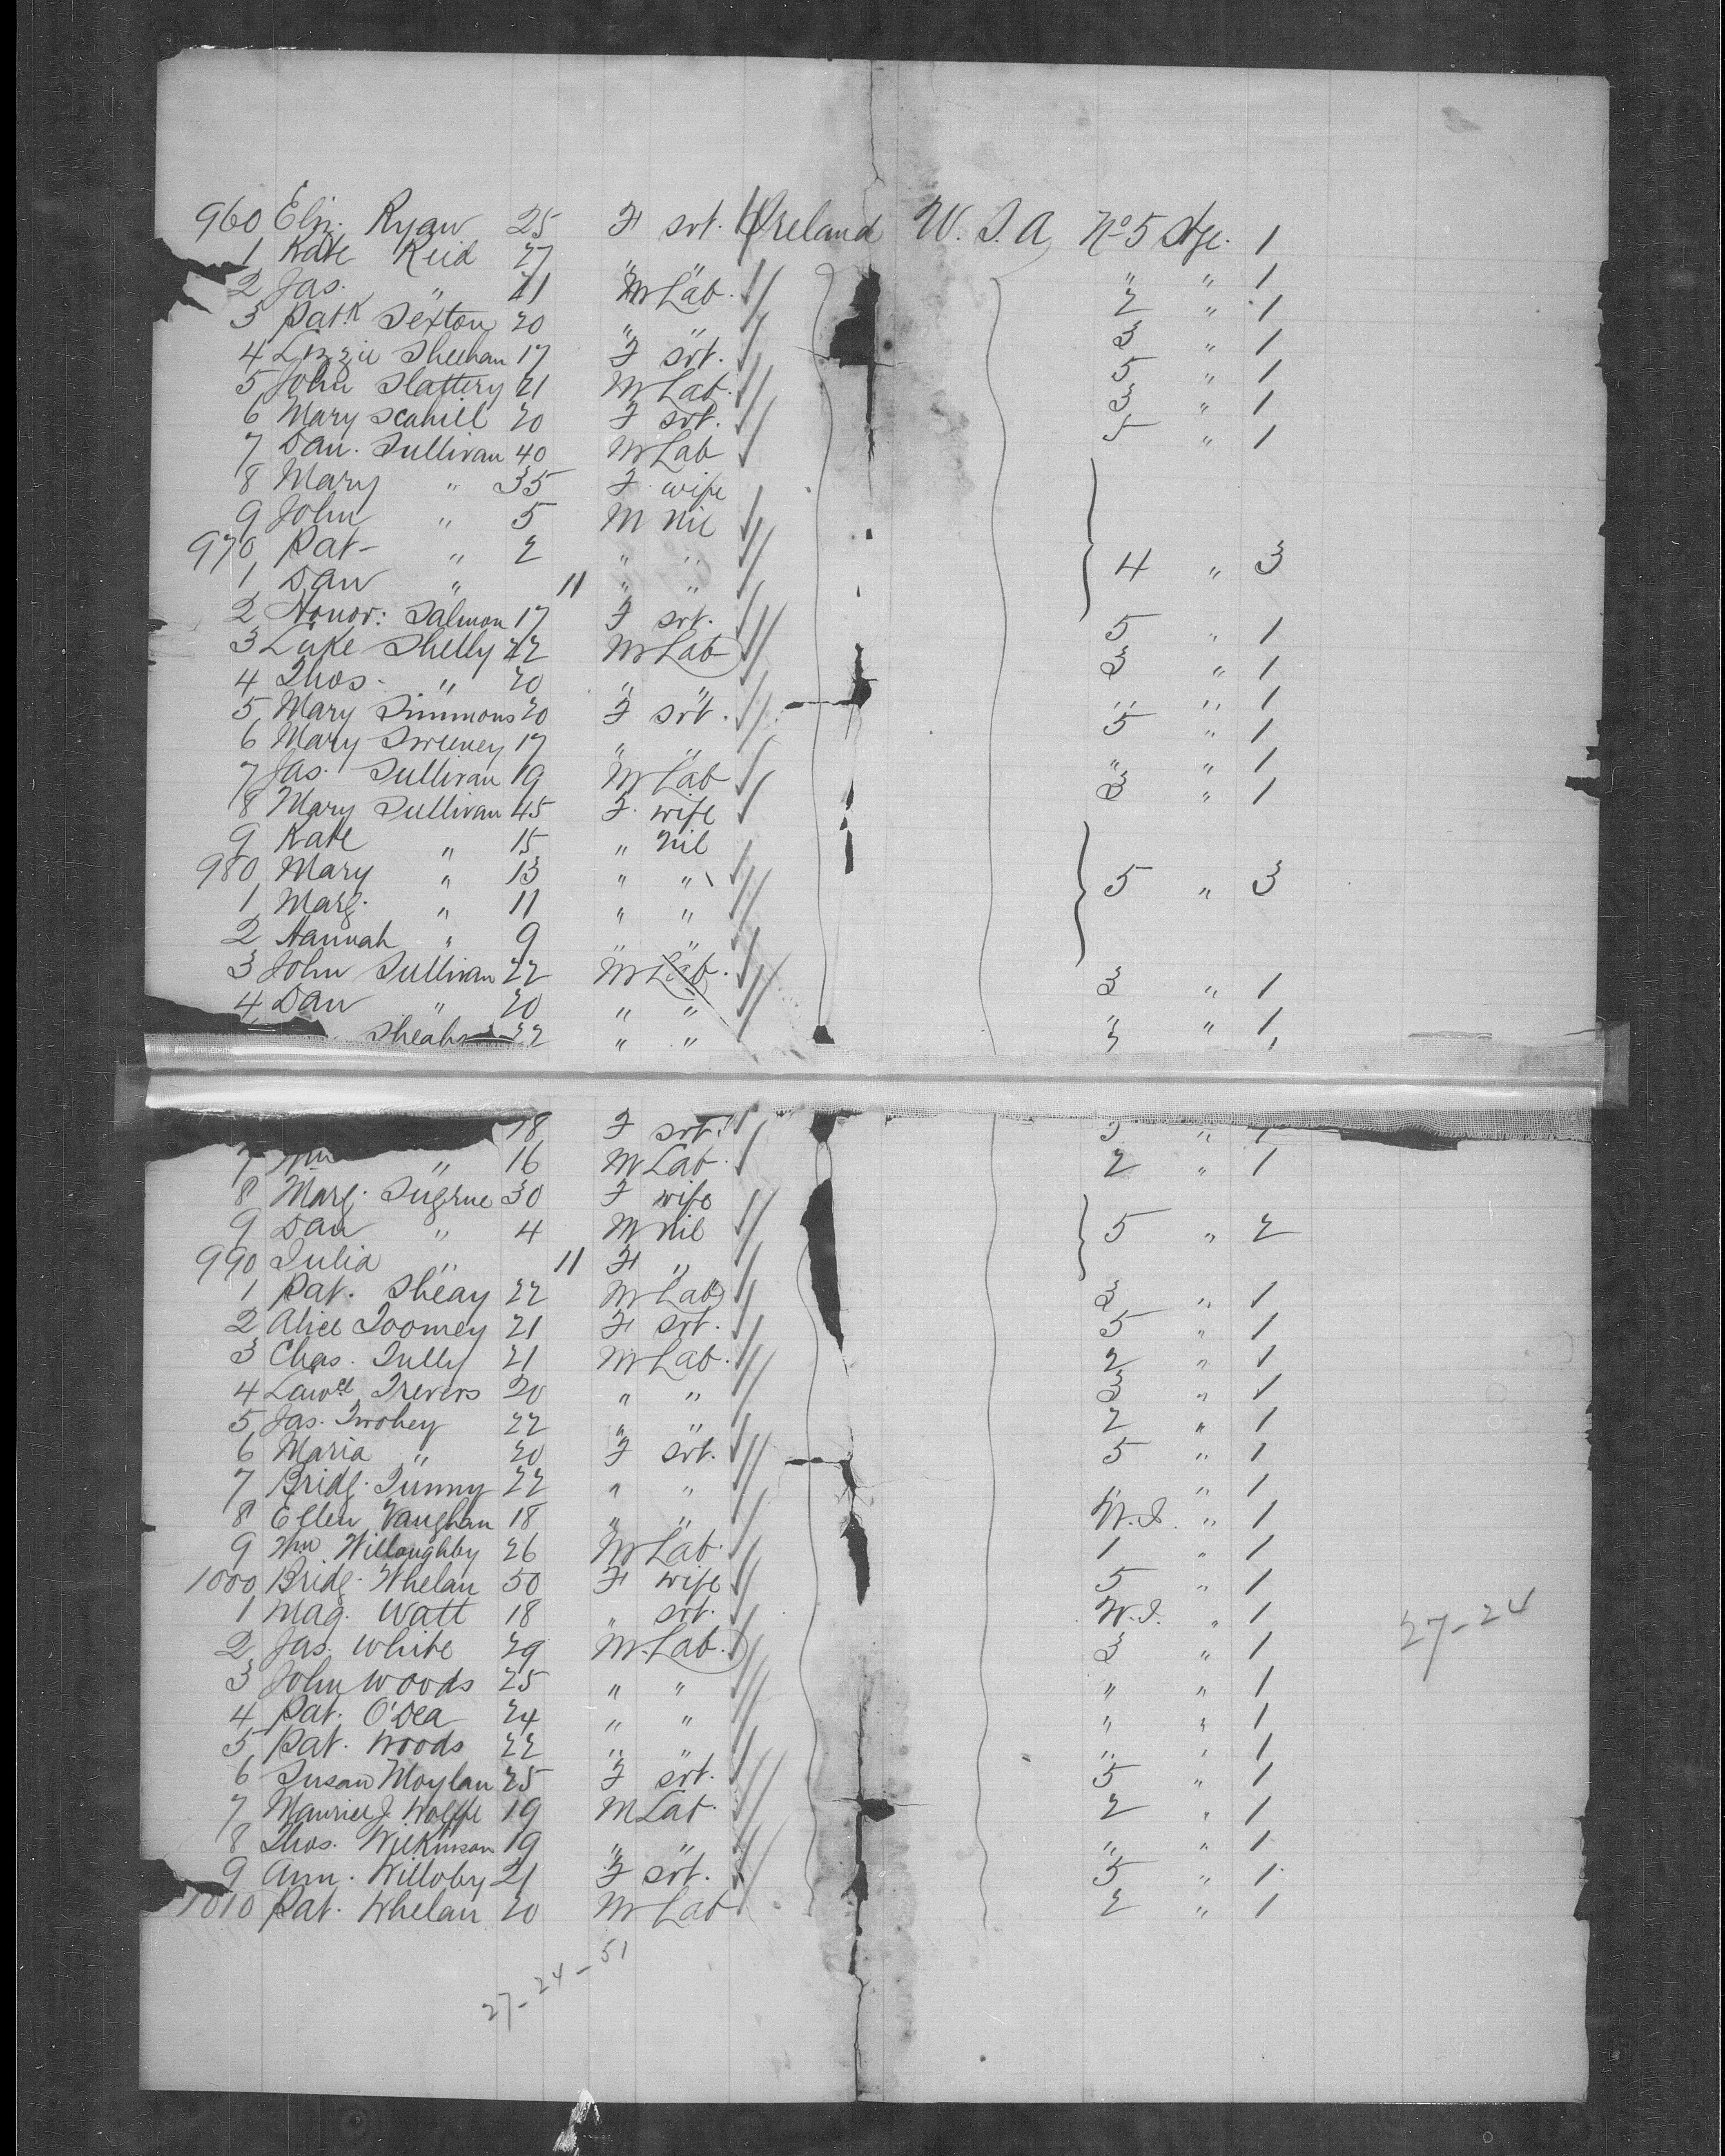 960 Eliz. Ryan 25 F srt. Ireland U.S.A. No 5 Stge. 1
1 Kate Reid 27 " " " " 1
2 Jas. " 21 M Lab. 2 " 1
3 Patk Sexton 20 " " 3 " 1
4 Lizzie Sheehan 17 F srt. 5 " 1
5 John Slattery 21 M Lab. 3 " 1
6 Mary Scahill 20 F srt. 5 " 1
7 Dan. Sullivan 40 M Lab
8 Mary " 35 F wife
9 John " 5 M nil
970 Pat - " 2 " " 4 " 3
1 Dan " 11 " "
2 Honor: Salmon 17 F srt. 5 " 1
3 Luke Shelly 22 M Lab 3 " 1
4 Thos. " 20 " " " " 1
5 Mary Simmons 20 F srt. 5 " 1
6 Mary Sweeney 17 " " " " 1
7 Jas. Sullivan 19 M Lab 3 " 1
8 Mary Sullivan 45 F. wife
9 Kate " 15 " nil
980 Mary " 13 " " 5 " 3
1 Marg. " 11 " "
2 Hannah " 9 " "
3 John Sullivan 22 M Lab. 3 " 1
4 Dan " 20 " " " " 1
22 " " 3 1
18 F srt. 5 " 1
7 Wm " 16 M Lab. 2 " 1
8 Marg. Sugrue 30 F wife
9 Dan " 4 M nil 5 " 2
990 Julia " 11 F "
1 Pat. Sheay 22 M Lab 3 " 1
2 Alice Toomey 21 F srt. 5 " 1
3 Chas. Tully 21 M Lab. 2 " 1
4 Lawce Trevers 20 " " 3 " 1
5 Jas. Twohey 22 " " 2 " 1
6 Maria " 20 F srt. 5 " 1
7 Bridg. Tunny 22 " " " " 1
8 Ellen Vaughan 18 " " W.I. " 1
9 Wm Willoughby 26 M Lab. 1 " 1
1000 Bridg. Whelan 50 F wife 5 " 1
1 Mag. Watt 18 " srt. W.I. " 1
2 Jas. White 29 M. Lab. 3 " 1 27-24
3 John Woods 25 " " " " 1
4 Pat. O'Dea 24 " " " " 1
5 Pat. Woods 22 " " " " 1
6 Susan Moylan 25 F srt. 5 " 1
7 Maurice J. Wolffe 19 M Lab. 2 " 1
8 Thos. Wilkinson 19 " " " " 1
9 Ann. Willoby 21 F srt. 5 " 1
1010 Pat. Whelan 20 M Lab 2 " 1
27-24-51